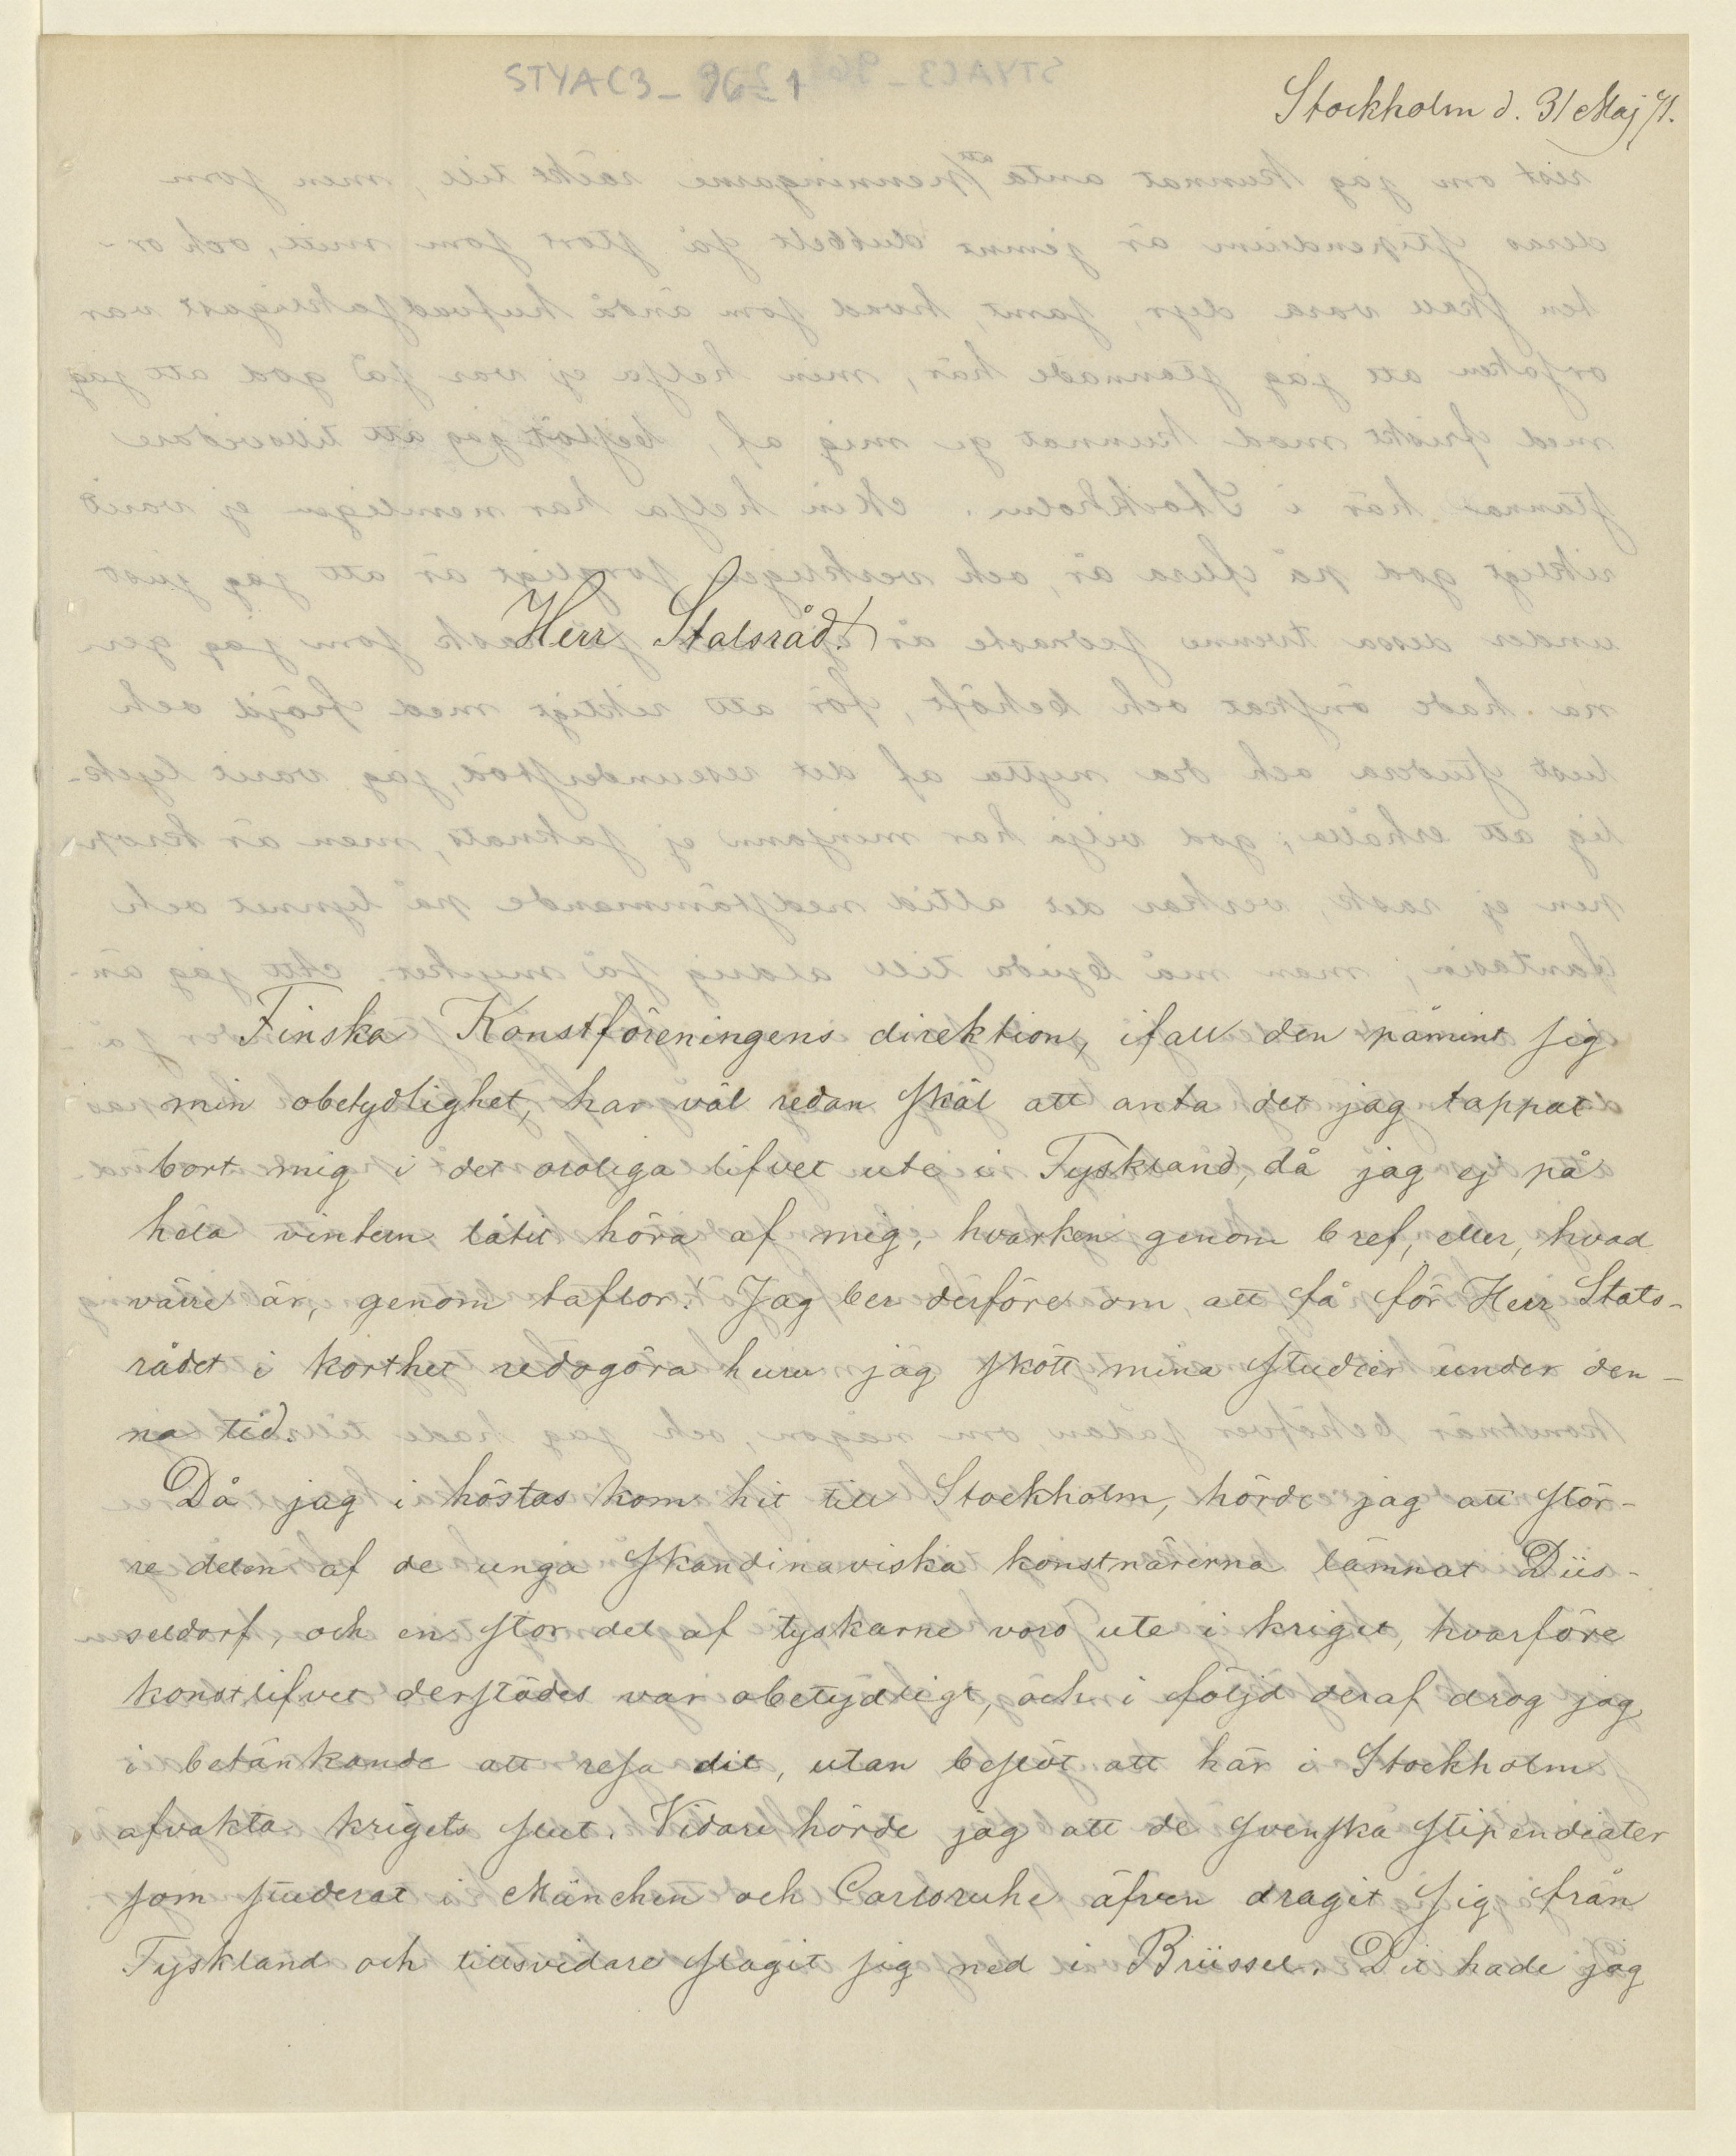 STYAC3_96_1
Stockholm d. 31 Maj 71.
Herr Statsråd!
Finska Konstföreningens direktion, ifall den påmint sig
min obetydlighet, har väl redan skäl att anta det jag tappat
bort mig i det oroliga lifvet ute i Tyskland, då jag ej på
hela vintern låtit höra af mig, hvarken genom bref, eller, hvad
värre är, genom taflor! Jag ber derföre om, att få för Herr Stats-
rådet i korthet redogöra huru jag skött mina studier under den-
na tid.
Då jag i höstas kom hit till Stockholm, hörde jag att stör-
re delen af de unga skandinaviska konstnärerna lämnat Düs-
seldorf, och en stor del af tyskarne voro ute i kriget, hvarföre
konstlifvet derstädes var obetydligt, och i följd deraf drog jag
i betänkande att resa dit, utan beslöt att här i Stockholm
afvakta krigets slut. Vidare hörde jag att de svenska stipendiater
som studerat i München och Carlsruhe äfven dragit sig från
Tyskland och tillsvidare slagit sig ned i Brüssel. Dit hade jag